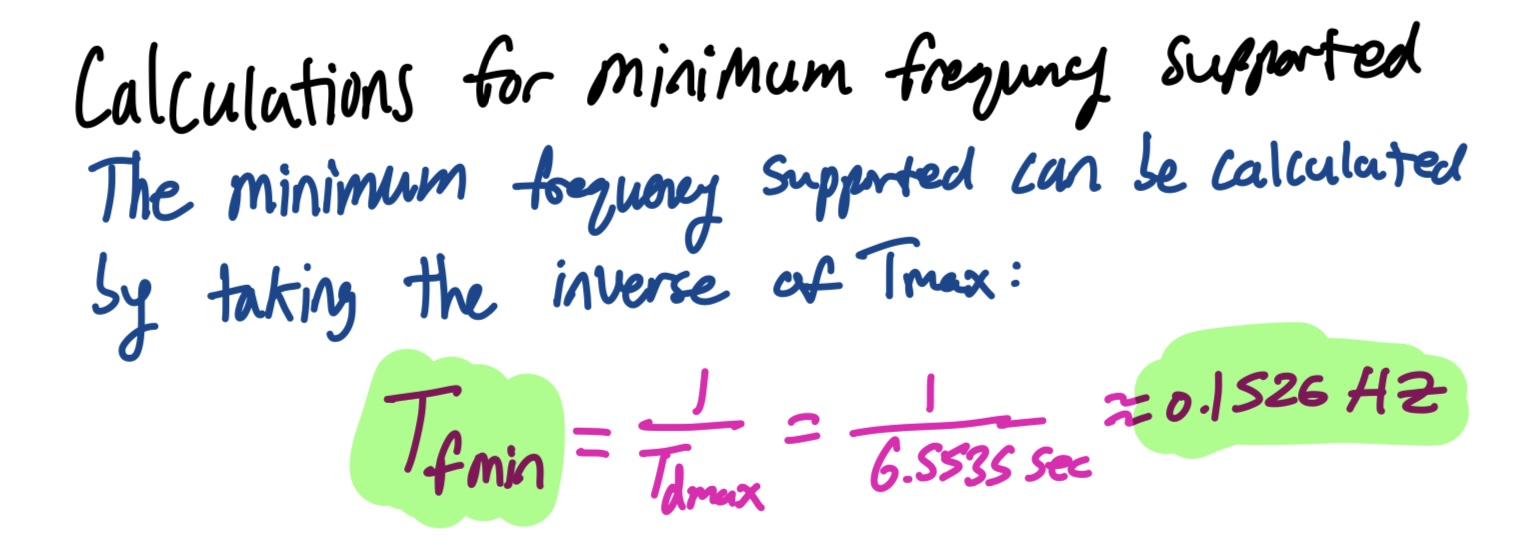 Calculations for minimum frequncy supported
The minimum frequency supported can be calculated
by taking the inverse of Tmax:
T_fmin = 1/T_dmax = 1/6.5535 sec ≈ 0.1526 HZ